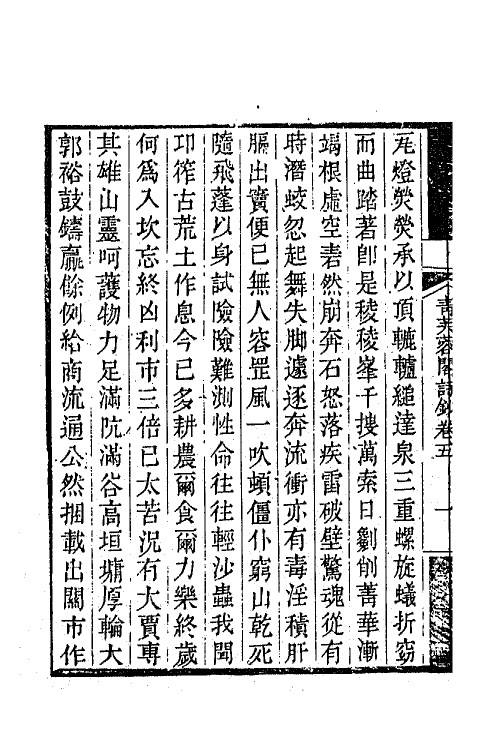 青芙蓉閣詩鈔卷五　一
瓦燈熒熒承以頂轆轤縋達泉三重螺旋蟻折窈
而曲踏著卽是稜稜峯千搜萬索日劚削菁華漸
竭根虛空砉然崩奔石怒落疾雷破壁驚魂從有
時潛蛟忽起舞失脚遽逐奔流衝亦有毒淫積肝
膈出竇便已無人容罡風一吹頓僵仆窮山乾死
隨飛蓬以身試險險難測性命往往輕沙蟲我聞
卭筰古荒土作息今已多耕農爾食爾力樂終歲
何爲入坎忘終凶利市三倍已太苦況有大賈專
其雄山靈呵護物力足滿阬滿谷高垣墉厚輪大
郭裕鼓鑄贏餘例給商流通公然捆載出關市作